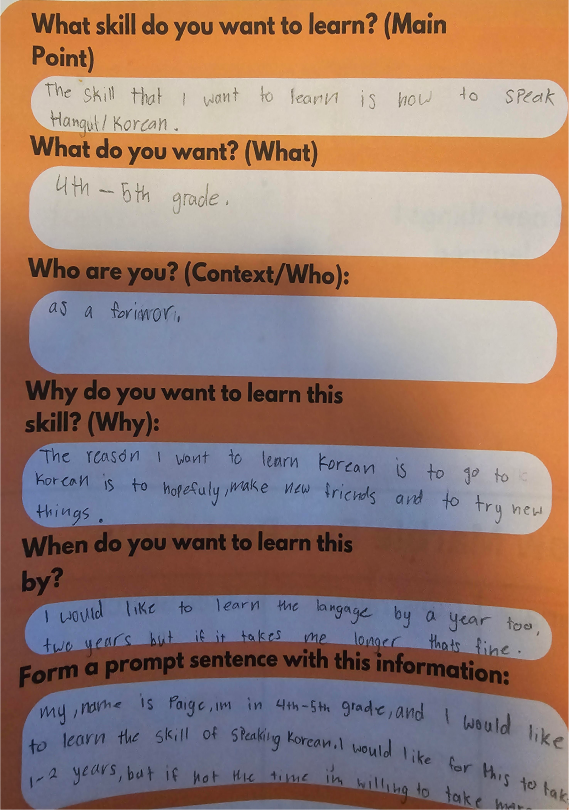 What skill do you want to learn? (Main
Point)
The skill that I want to learn is how to speak
Hangul/Korean.
What do you want? (What)
4th - 5th grade.
Who are you? (Context/Who):
as a
Why do you want to learn this
skill? (Why):
The reason I want to learn Korean is to go to
Korean is to hopefuly, make new friends and to try new
things.
When do you want to learn this
by?
I would like to learn the langage by a year too,
two years but if it takes me longer thats fine.
Form a prompt sentence with this information:
my, name is Paige, im in 4th-5th grade, and I would like
to learn the skill of speaking Korean. I would like for this to tak
1-2 years, but if not the time im willing to take